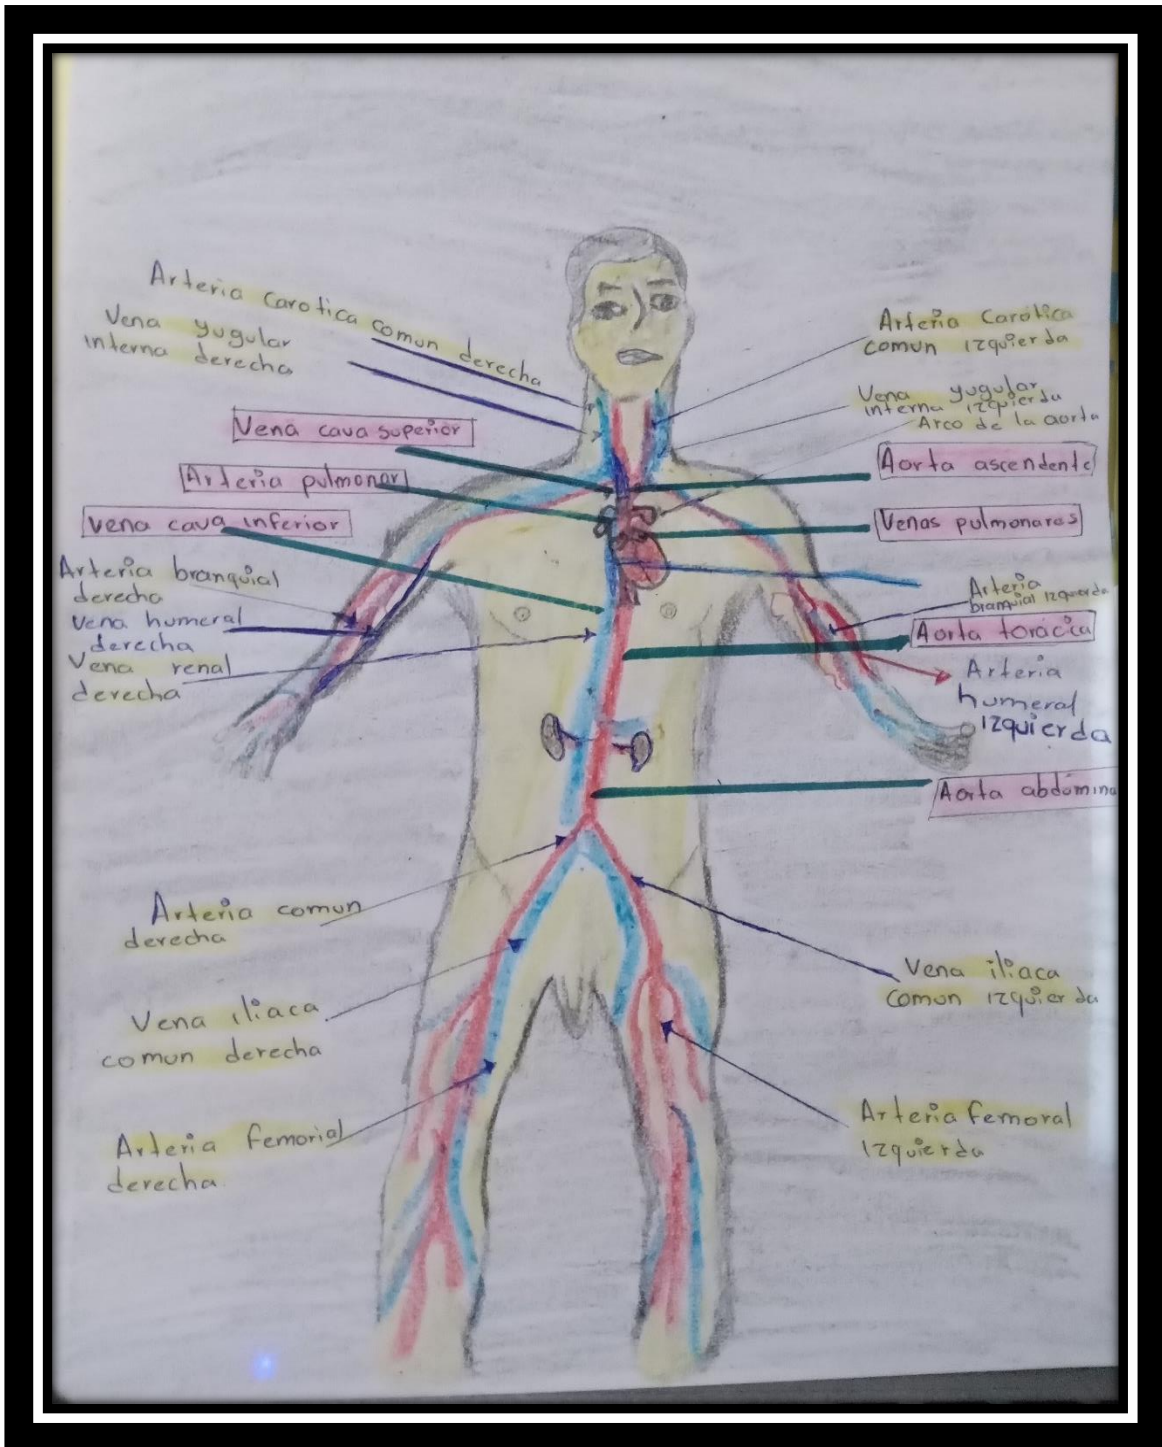 Arteria carotica comun derecha
Vena yugular
interna derecha
Vena cava superior
Arteria pulmonar
Vena cava inferior
Arteria branquial
derecha
Vena humeral
derecha
Vena renal
derecha
Arteria comun
derecha
Vena iliaca
comun derecha
Arteria Femorial
derecha
Arteria Carotica
comun izquierda
Vena yugular
interna izquierda
Arco de la aorta
Aorta ascendente
Venas pulmonaras
Arteria
branquial izquierda
Aorta torácica
Arteria
humeral
izquierda
Aorta abdómina
Vena iliaca
comun izquierda
Arteria Femoral
Izquierda